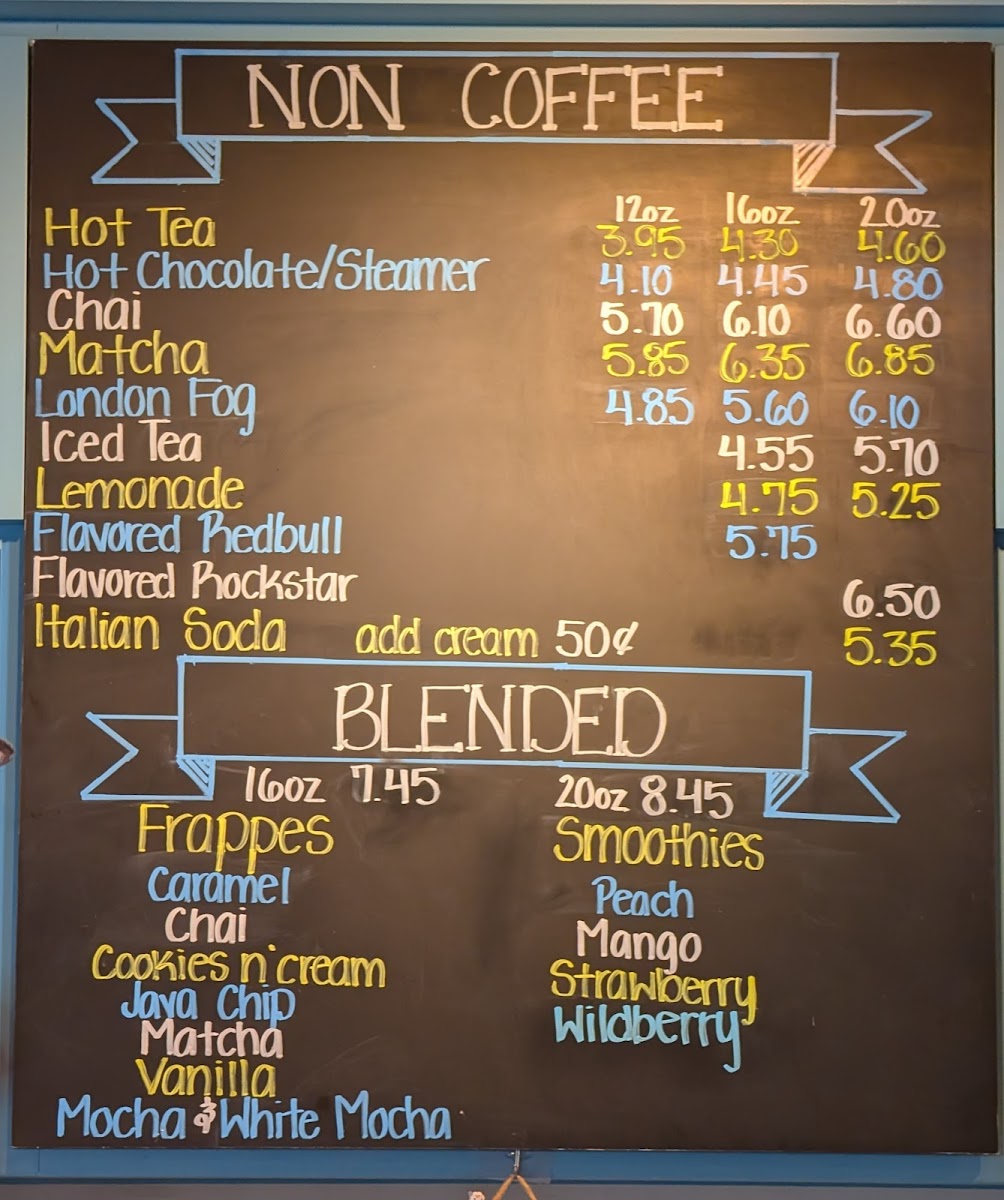 NON COFFEE
12oz 16oz 20oz
Hot Tea 3.95 4.30 4.60
Hot Chocolate/Steamer 4.10 4.45 4.80
Chai 5.70 6.10 6.60
Matcha 5.85 6.35 6.85
London Fog 4.85 5.60 6.10
Iced Tea 4.55 5.70
Lemonade 4.75 5.25
Flavored Redbull 5.75
Flavored Rockstar 6.50
Italian Soda add cream 50¢ 5.35
BLENDED
16oz 7.45 20oz 8.45
Frappes Smoothies
Caramel Peach
Chai Mango
Cookies n'cream Strawberry
Java Chip Wildberry
Matcha
Vanilla
Mocha & White Mocha